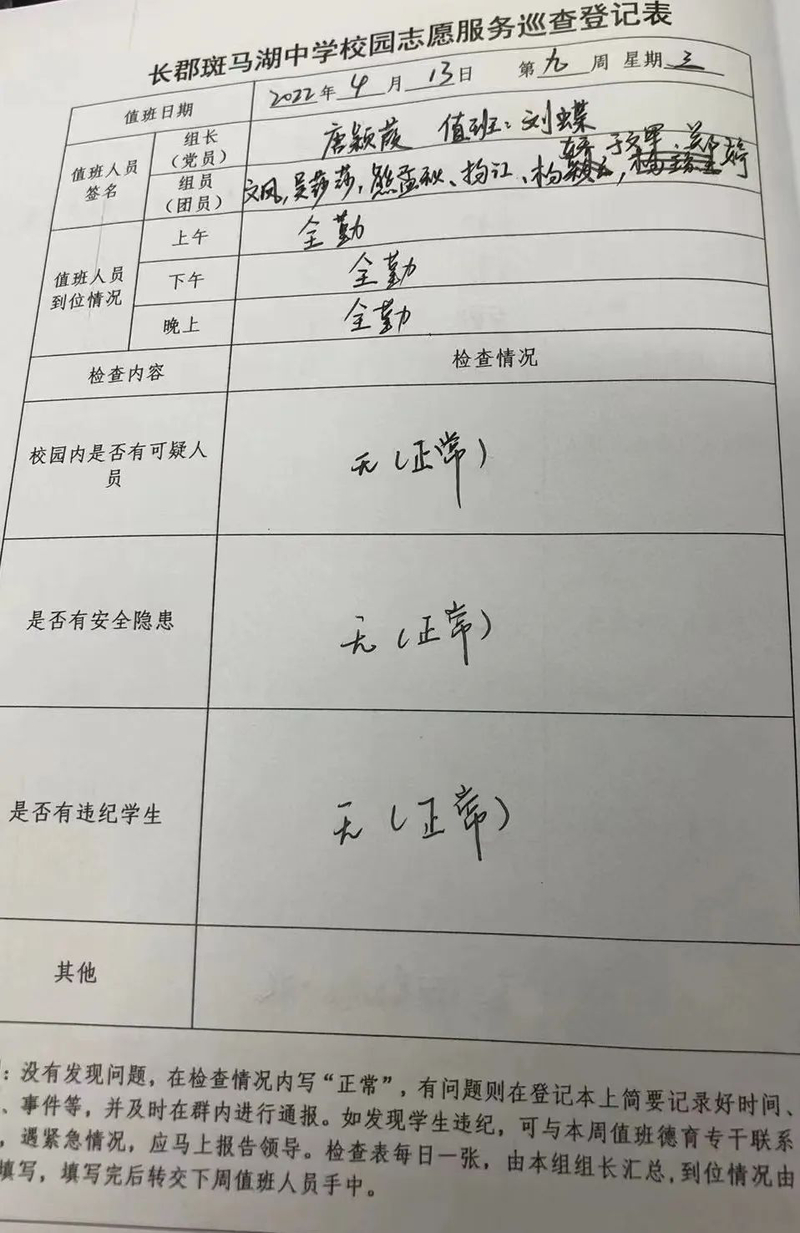 长郡斑马湖中学校园志愿服务巡查登记表
值班日期 2022年4月13日 第九周 星期三
值班人员签名 组长(党员) 唐颖葭 值班:刘蝶
组员(团员) 文凤,吴莎莎,熊孟秋、杨江、杨
值班人员到位情况 上午 全勤
下午 全勤
晚上 全勤
检查内容 检查情况
校园内是否有可疑人员 无(正常)
是否有安全隐患 无(正常)
是否有违纪学生 无(正常)
其他
:没有发现问题,在检查情况内写“正常”,有问题则在登记本上简要记录好时间、
、事件等,并及时在群内进行通报。如发现学生违纪,可与本周值班德育专干联系
,遇紧急情况,应马上报告领导。检查表每日一张,由本组组长汇总,到位情况由
填写,填写完后转交下周值班人员手中。